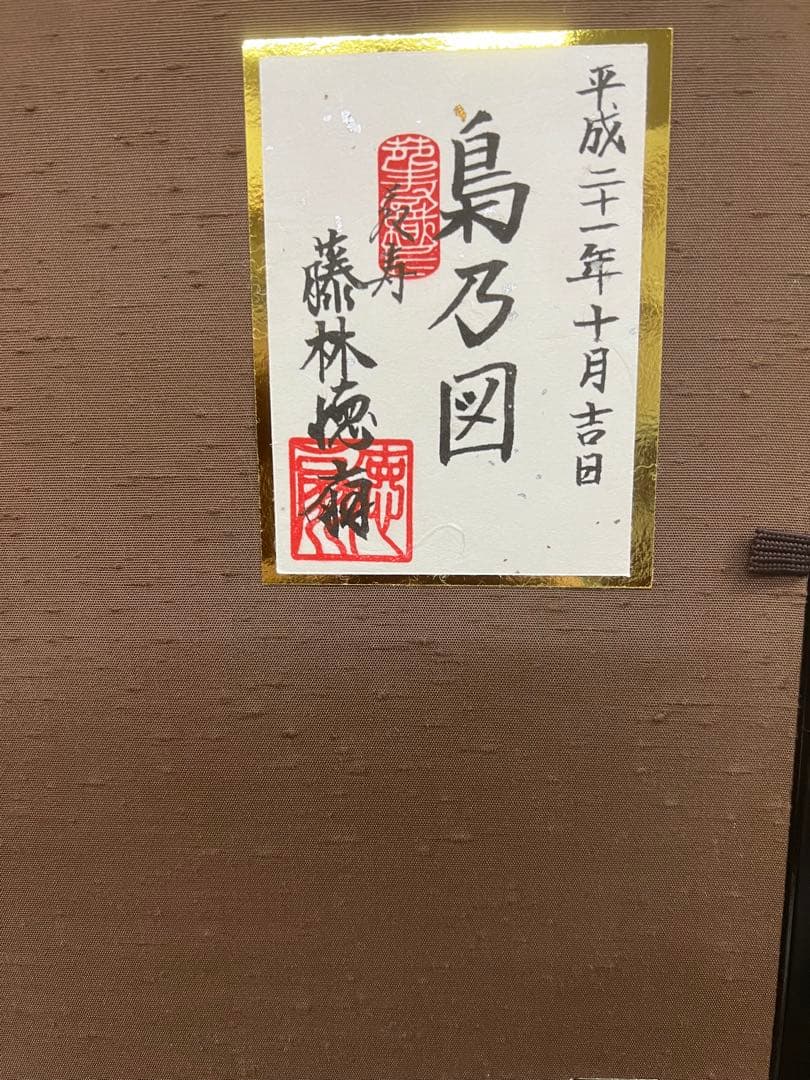 平成二十一年十月吉日
梟乃図
寿
藤林徳